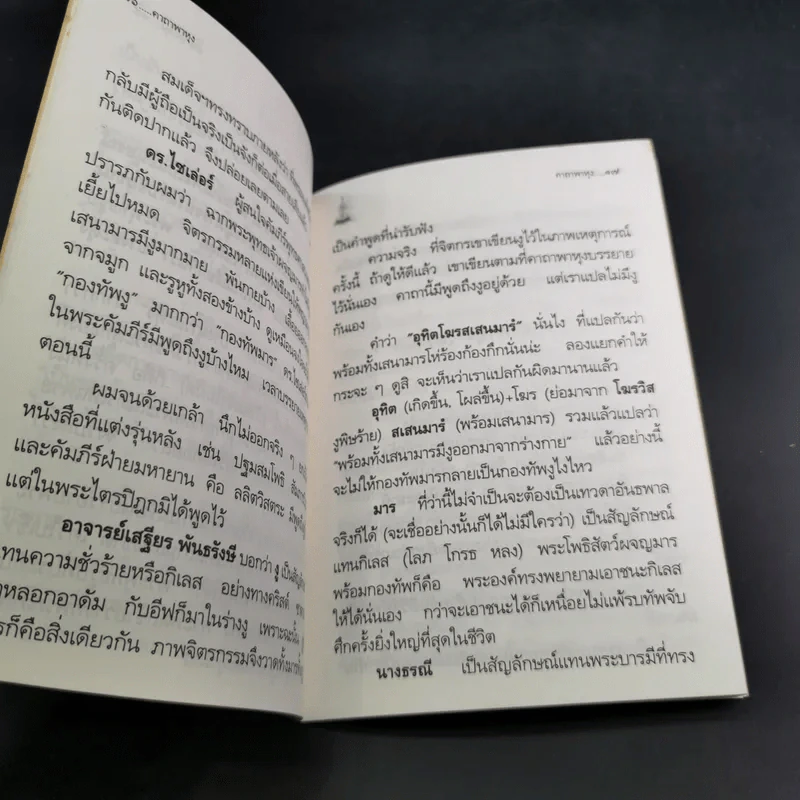 คาถาพาหุง
สมเด็จฯทรงทราบภายหลังว่า
กลับมีผู้ถือเป็นจริงเป็นจัง
กันติดปากแล้ว จึงปล่อยเลยตามเลย
ดร.ไซเล่อร์ ผู้สนใจคัมภีร์
ปรารภกับผมว่า ฉากพระพุทธเจ้าผจญ
เยี้ยไปหมด จิตรกรรมหลายแห่งเขียนให้
เสนามารมีงูมากมาย พันกายบ้าง เลื้อย
จากจมูก และรูหูทั้งสองข้างบ้าง ดูเหมือน
"กองทัพงู" มากกว่า "กองทัพมาร" ดร.
ในพระคัมภีร์มีพูดถึงงูบ้างไหม เวลาบรรยาย
ตอนนี้
ผมจนด้วยเกล้า นึกไม่ออกจริง ๆ
หนังสือที่แต่งรุ่นหลัง เช่น ปฐมสมโพธิ
และคัมภีร์ฝ่ายมหายาน คือ ลลิตวิสตระ มีพูด
แต่ในพระไตรปิฎกมิได้พูดไว้
อาจารย์เสฐียร พันธรังษี บอกว่า งู เป็น
แทนความชั่วร้ายหรือกิเลส อย่างทางคริสต์
หลอกอาดัม กับอีฟก็มาในร่างงู เพราะฉะนั้น
ก็คือสิ่งเดียวกัน ภาพจิตรกรรมจึงวาดทั้งมาร
คาถาพาหุง.....๑๗
เป็นคำพูดที่น่ารับฟัง
ความจริง ที่จิตกรเขาเขียนงูไว้ในภาพเหตุการณ์
ครั้งนี้ ถ้าดูให้ดีแล้ว เขาเขียนตามที่คาถาพาหุงบรรยาย
ไว้นั่นเอง คาถานี้มีพูดถึงงูอยู่ด้วย แต่เราแปลไม่มีงู
กันเอง
คำว่า "อุทิตโฆรสเสนมารํ" นั่นไง ที่แปลกันว่า
พร้อมทั้งเสนามารโห่ร้องก้องกึกนั่นน่ะ ลองแยกคำให้
กระจะ ๆ ดูสิ จะเห็นว่าเราแปลกันผิดมานานแล้ว
อุทิต (เกิดขึ้น, โผล่ขึ้น)+โฆร (ย่อมาจาก โฆรวิส
งูพิษร้าย) สเสนมารํ (พร้อมเสนามาร) รวมแล้วแปลว่า
"พร้อมทั้งเสนามารมีงูออกมาจากร่างกาย" แล้วอย่างนี้
จะไม่ให้กองทัพมารกลายเป็นกองทัพงูไงไหว
มาร ที่ว่านี้ไม่จำเป็นจะต้องเป็นเทวดาอันธพาล
จริงก็ได้ (จะเชื่ออย่างนั้นก็ได้ไม่มีใครว่า) เป็นสัญลักษณ์
แทนกิเลส (โลภ โกรธ หลง) พระโพธิสัตว์ผจญมาร
พร้อมกองทัพก็คือ พระองค์ทรงพยายามเอาชนะกิเลส
ให้ได้นั่นเอง กว่าจะเอาชนะได้ก็เหนื่อยไม่แพ้รบทัพจับ
ศึกครั้งยิ่งใหญ่ที่สุดในชีวิต
นางธรณี เป็นสัญลักษณ์แทนพระบารมีที่ทรง